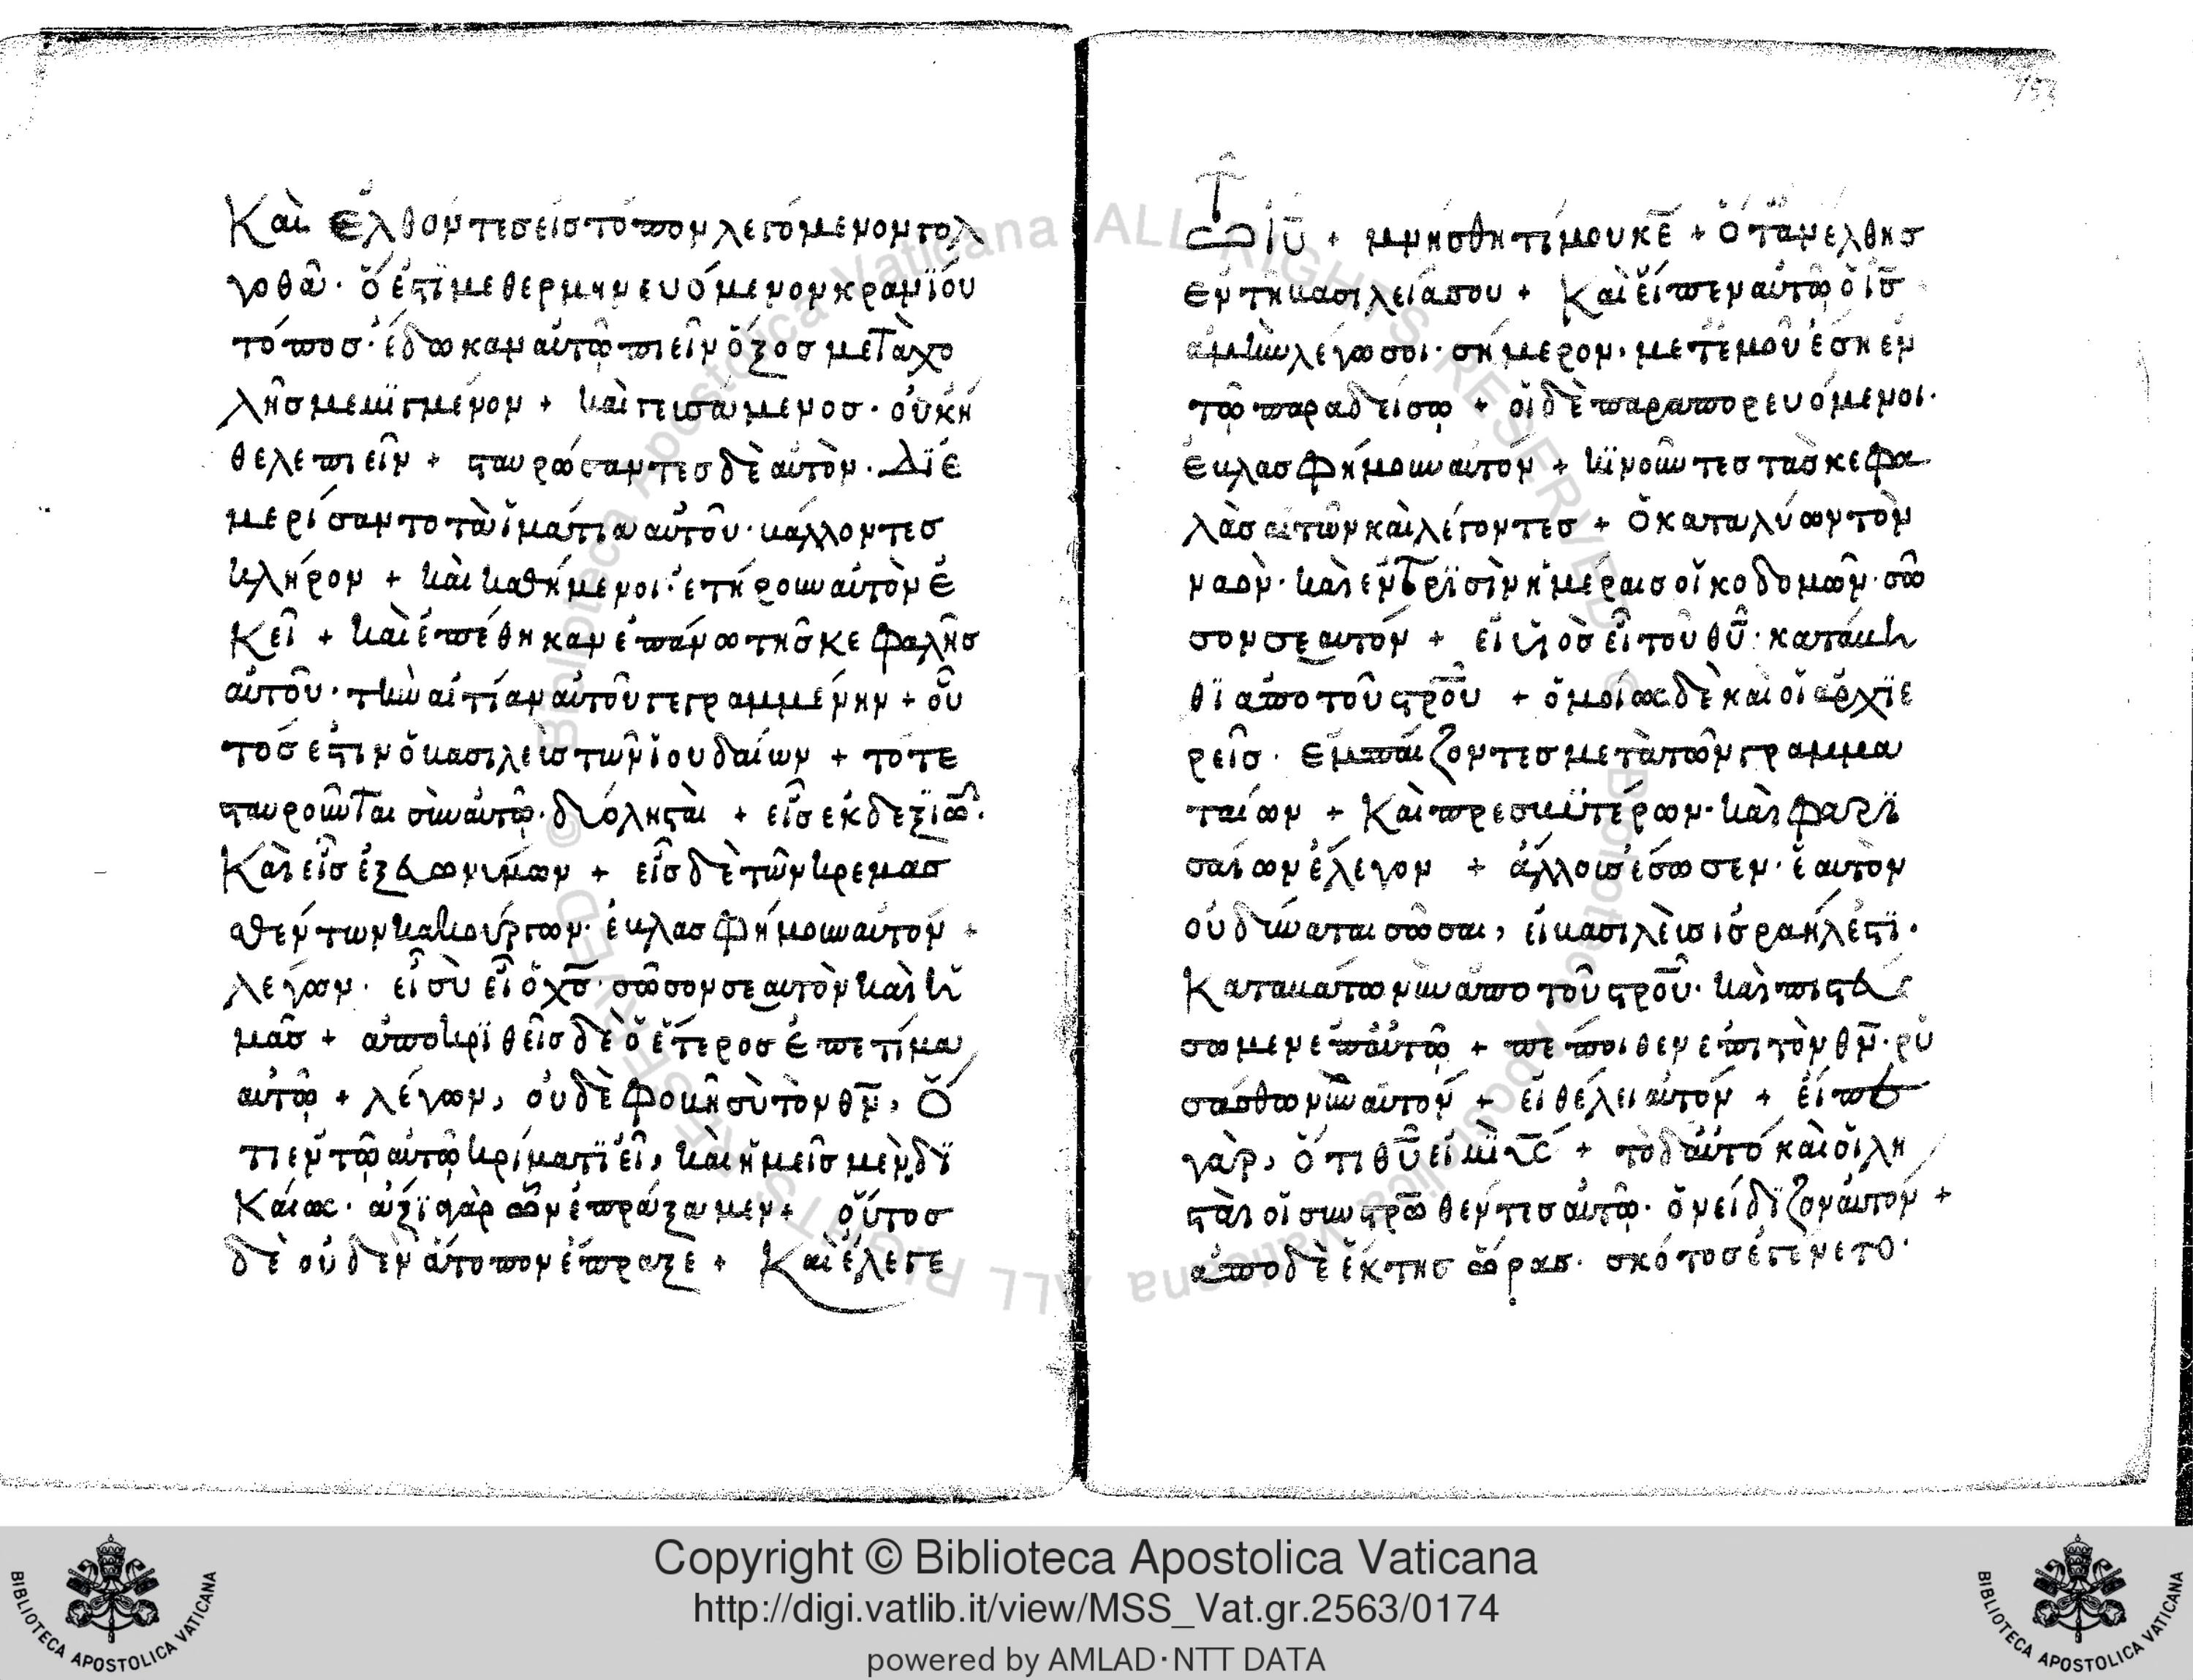 Και ἐλθόντες εἰς τόπον λεγόμενον γολ
γοθᾶ· ὅ ἐστϊ μεθερμηνευόμενον κρανΐου
τόπος· ἔδωκαν αὐτῶ πιεῖν ὄξος μετὰ χο
λῆς μεμϊγμένον + καὶ γευσάμενος· οὐκ ή
θελε πιεῖν + σταυρώσαντες δὲ αὐτὸν· Δϊε
μερίσαντο τὰ ἱμάτια αὐτοῦ· βάλλοντες
κλῆρον + καὶ καθήμενοι· ἐτήρουν αὐτὸν ἐ
κεῖ + καὶ ἐπέθηκαν ἐπάνω τῆς κεφαλῆς
αὐτοῦ· τὴν αἰτίαν αὐτοῦ γεγραμμένην + οὗ
τός ἐστιν ὁ βασιλεὺς τῶν ἰουδαίων + τότε
σταυροῦνται σὺν αὐτῶ· δύο λησταὶ + εἷς ἐκ δεξιῶ·
Καὶ εἷς ἐξ εὐωνύμων + εἷς δὲ τῶν κρεμασ
θέντων κακούργων· ἐβλασφήμουν αὐτόν +
λέγων· εἰ σὺ εἶ ὁ χς· σῶσον σεαυτὸν καὶ ἡ
μᾶς + ἀποκρϊθεὶς δὲ ὁ ἕτερος ἐπετίμα
αὐτῶ + λέγων, οὐδὲ φοβῆ σὺ τὸν θν, ὅ
τι ἐν τῶ αὐτῶ κρίματϊ εἶ, καὶ ἡμεῖς μὲν δϊ
Καίως· ἄξϊα γὰρ ὧν ἐπράξαμεν + οὗτος
δὲ οὐδὲν ἄτοπον ἔπραξε + Καὶ ἔλεγε
τῶ ιυ + μνήσθητί μου κε + ὅταν ἔλθης
ἐν τῆ βασιλεία σου + Καὶ εἶπεν αὐτῶ ὁ ις
ἀμὴν λέγω σοι· σήμερον· μετ' ἐμοῦ ἔση ἐν
τῶ παραδείσω + οἱ δὲ παραπορευόμενοι·
ἐβλασφήμουν αὐτόν + κϊνοῦντες τὰς κεφα
λὰς αὐτῶν καὶ λέγοντες + ὁ καταλύων τὸν
ναὸν· καὶ ἐν τρϊσὶν ἡμέραις οἰκοδομῶν· σῶ
σον σεαυτόν + εἰ υἱὸς εἶ τοῦ θυ· κατάβη
θϊ ἀπο τοῦ στρου + ὁμοίως δὲ καὶ οἱ ἀρχϊε
ρεῖς· ἐμπαίζοντες μετὰ τῶν γραμμα
ταίων + Καὶ πρεσβϋτέρων· καὶ φαρϊ
σαίων ἔλεγον + ἄλλους ἔσωσεν· ἑαυτὸν
οὐ δύναται σῶσαι, εἰ βασιλεὺς ἰσραήλ ἐστϊ·
Καταβάτω νῦν ἀπο τοῦ στρου· καὶ πιστεύ
σωμεν ἐπ' αὐτῶ + πέποιθεν ἐπι τὸν θν· ρύ
σάσθω νῦν αὐτόν + εἰ θέλει αὐτόν + εἶπε
γὰρ, ὅτι θυ εἰμὶ υς + τὸ δ' αὐτό καὶ οἱ λη
σταὶ οἱ συστρωθέντες αὐτῶ· ὀνείδϊζον αὐτόν +
ἀπο δὲ ἕκτης ὥρας· σκότος ἐγένετο·
153
Copyright © Biblioteca Apostolica Vaticana
http://digi.vatlib.it/view/MSS_Vat.gr.2563/0174
powered by AMLAD·NTT DATA
BIBLIOTECA APOSTOLICA VATICANA
BIBLIOTECA APOSTOLICA VATICANA